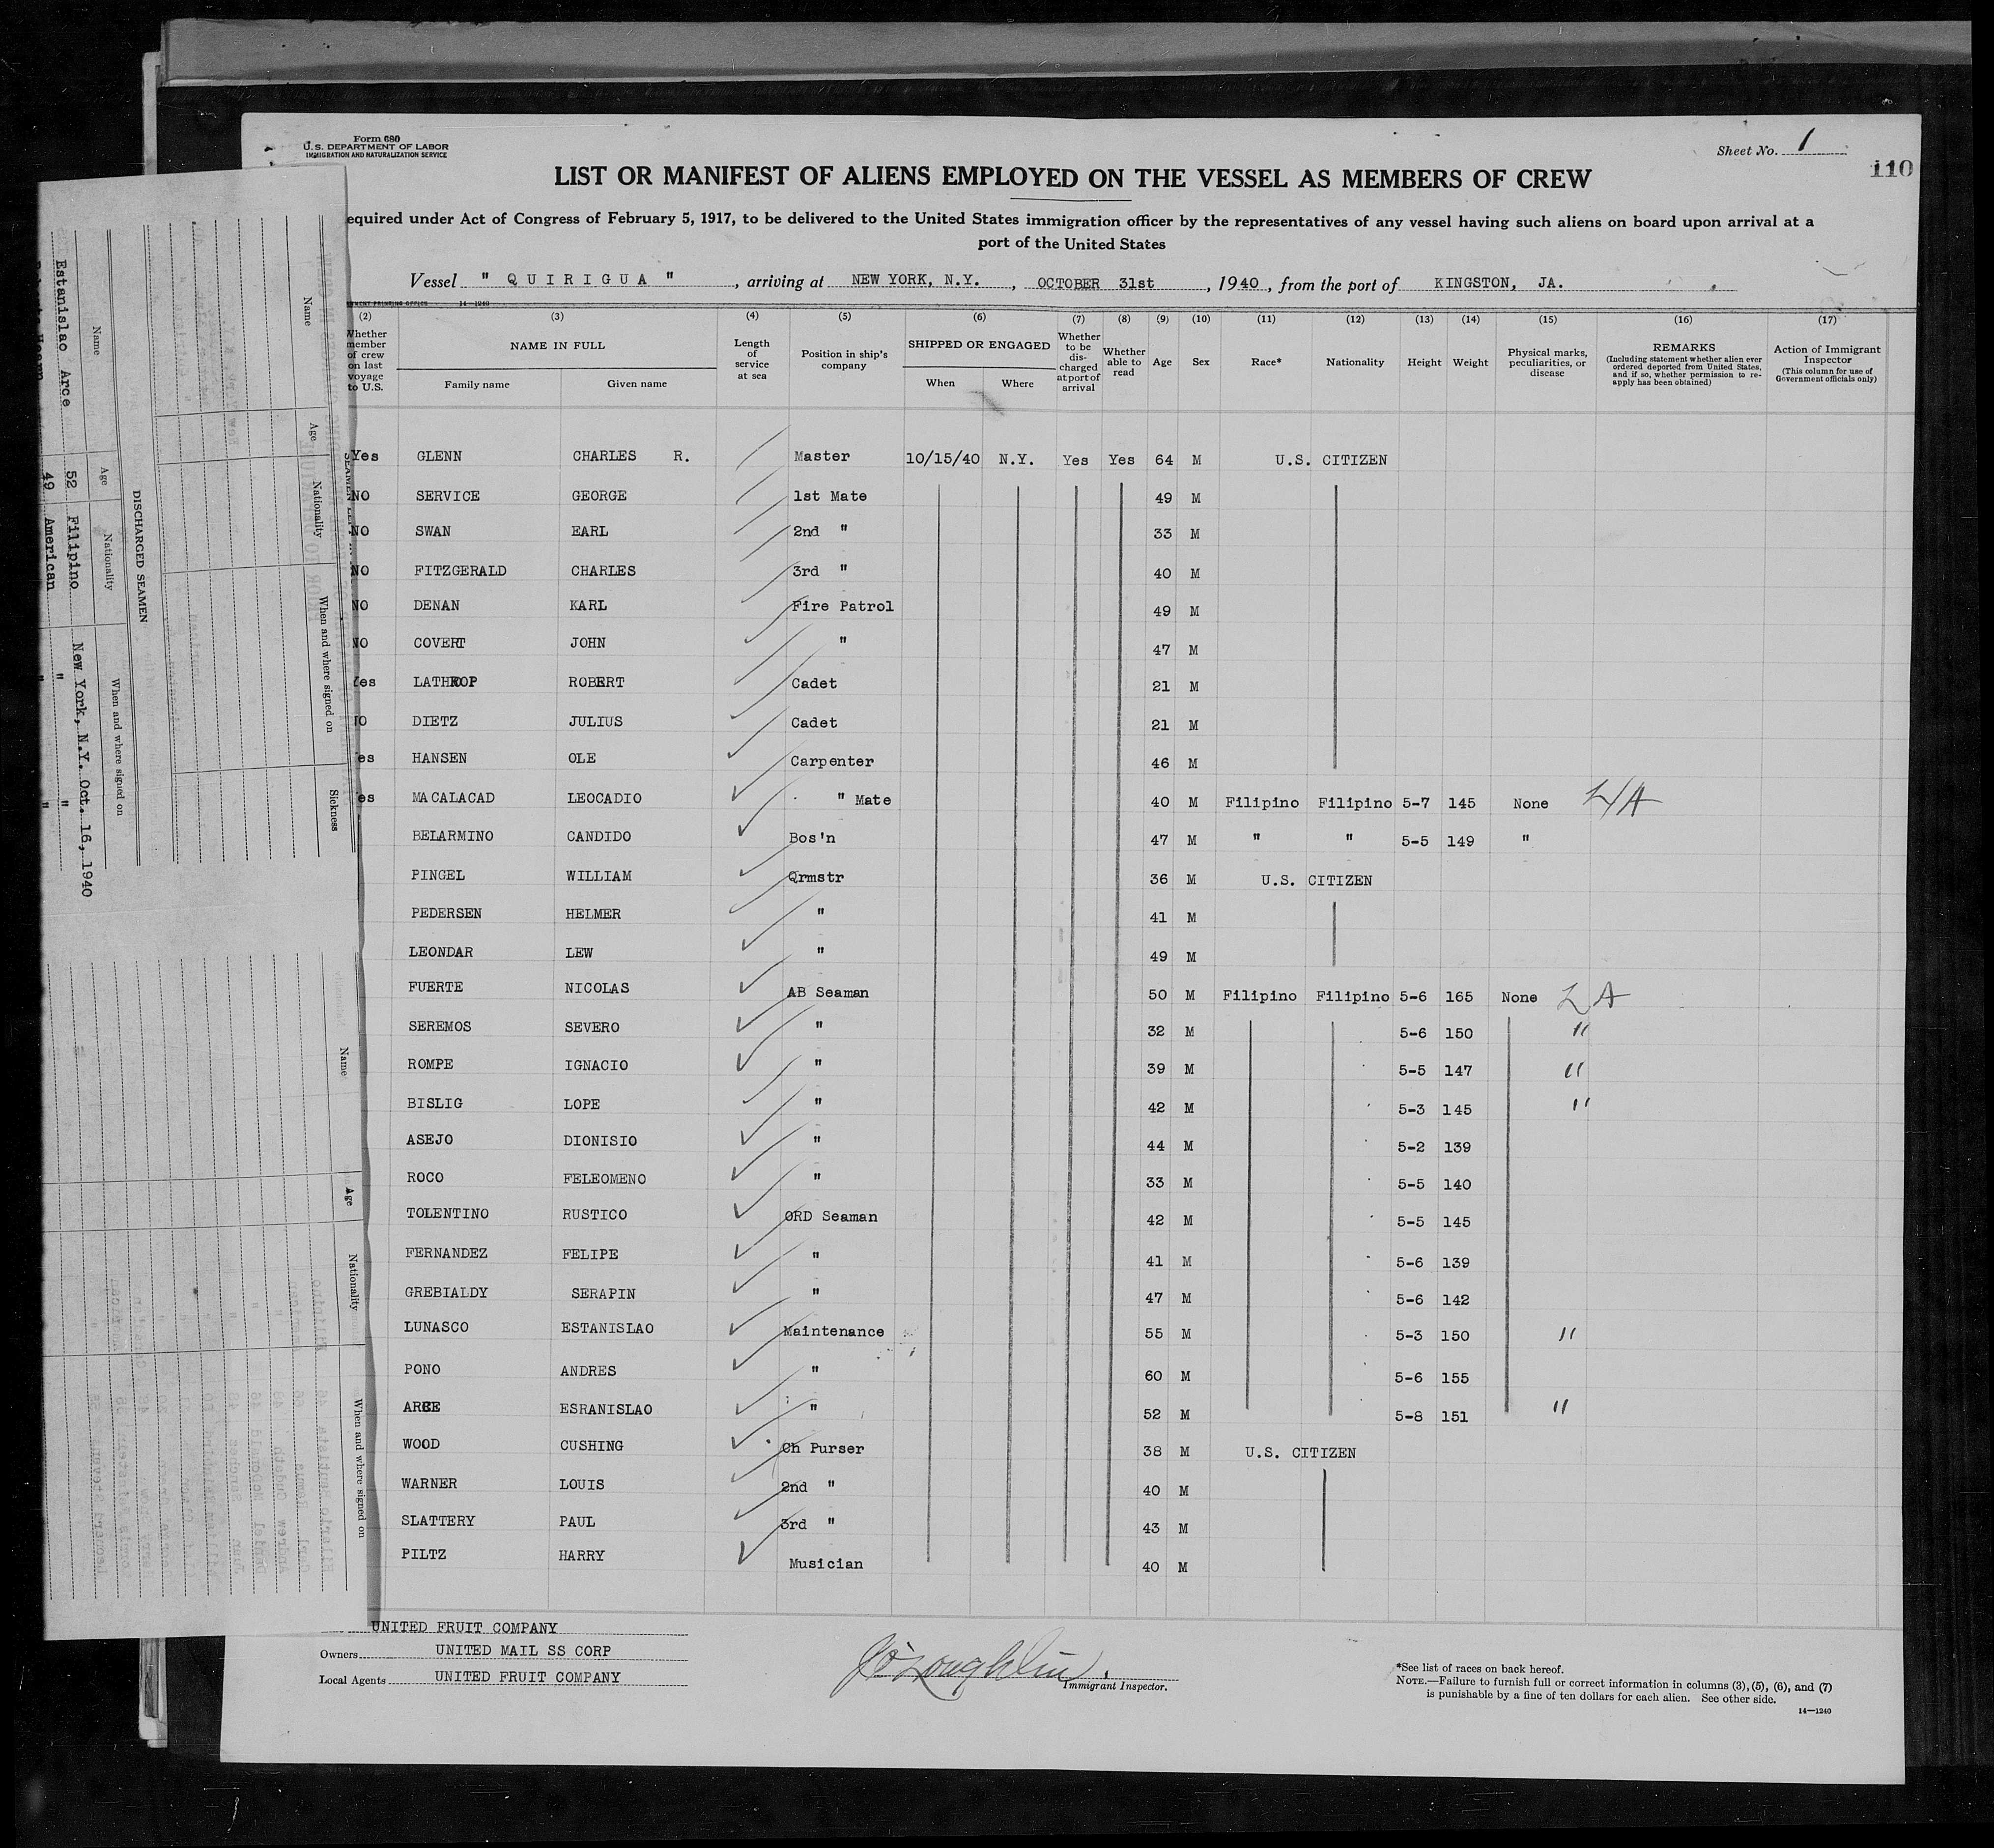 Form 680
U.S. DEPARTMENT OF LABOR
IMMIGRATION AND NATURALIZATION SERVICE
Sheet No. 1
110
LIST OR MANIFEST OF ALIENS EMPLOYED ON THE VESSEL AS MEMBERS OF CREW
equired under Act of Congress of February 5, 1917, to be delivered to the United States immigration officer by the representatives of any vessel having such aliens on board upon arrival at a
port of the United States
Vessel " QUIRIGUA ", arriving at NEW YORK, N.Y., OCTOBER 31st, 1940, from the port of KINGSTON, JA.
14-1240
(2) (3) (4) (5) (6) (7) (8) (9) (10) (11) (12) (13) (14) (15) (16) (17)
Whether member of crew on last voyage to U.S.
NAME IN FULL
Family name Given name
Length of service at sea
Position in ship's company
SHIPPED OR ENGAGED
When Where
Whether to be discharged at port of arrival
Whether able to read
Age Sex Race* Nationality Height Weight
Physical marks, peculiarities, or disease
REMARKS
(Including statement whether alien ever ordered deported from United States, and if so, whether permission to reapply has been obtained)
Action of Immigrant Inspector
(This column for use of Government officials only)
Yes GLENN CHARLES R. Master 10/15/40 N.Y. Yes Yes 64 M U.S. CITIZEN
NO SERVICE GEORGE 1st Mate 49 M
NO SWAN EARL 2nd " 33 M
NO FITZGERALD CHARLES 3rd " 40 M
NO DENAN KARL Fire Patrol 49 M
NO COVERT JOHN " 47 M
Yes LATHROP ROBERT Cadet 21 M
NO DIETZ JULIUS Cadet 21 M
es HANSEN OLE Carpenter 46 M
es MACALACAD LEOCADIO " Mate 40 M Filipino Filipino 5-7 145 None L/A
BELARMINO CANDIDO Bos'n 47 M " " 5-5 149 "
PINGEL WILLIAM Qrmstr 36 M U.S. CITIZEN
PEDERSEN HELMER " 41 M
LEONDAR LEW " 49 M
FUERTE NICOLAS AB Seaman 50 M Filipino Filipino 5-6 165 None L A
SEREMOS SEVERO " 32 M 5-6 150 "
ROMPE IGNACIO " 39 M 5-5 147 "
BISLIG LOPE " 42 M 5-3 145 "
ASEJO DIONISIO " 44 M 5-2 139
ROCO FELEOMENO " 33 M 5-5 140
TOLENTINO RUSTICO ORD Seaman 42 M 5-5 145
FERNANDEZ FELIPE " 41 M 5-6 139
GREBIALDY SERAPIN " 47 M 5-6 142
LUNASCO ESTANISLAO Maintenance 55 M 5-3 150 "
PONO ANDRES " 60 M 5-6 155
ARCE ESRANISLAO " 52 M 5-8 151 "
WOOD CUSHING Ch Purser 38 M U.S. CITIZEN
WARNER LOUIS 2nd " 40 M
SLATTERY PAUL 3rd " 43 M
PILTZ HARRY Musician 40 M
UNITED FRUIT COMPANY
Owners UNITED MAIL SS CORP
Local Agents UNITED FRUIT COMPANY
JO'Loughlin
Immigrant Inspector.
*See list of races on back hereof.
NOTE.—Failure to furnish full or correct information in columns (3), (5), (6), and (7)
is punishable by a fine of ten dollars for each alien. See other side.
14—1240
Name Age Nationality When and where signed on Sickness
DISCHARGED SEAMEN
Name Age Nationality When and where signed on
Estanislao Arce 52 Filipino New York, N.Y. Oct. 16, 1940
49 American " "
Name Age Nationality When and where signed on